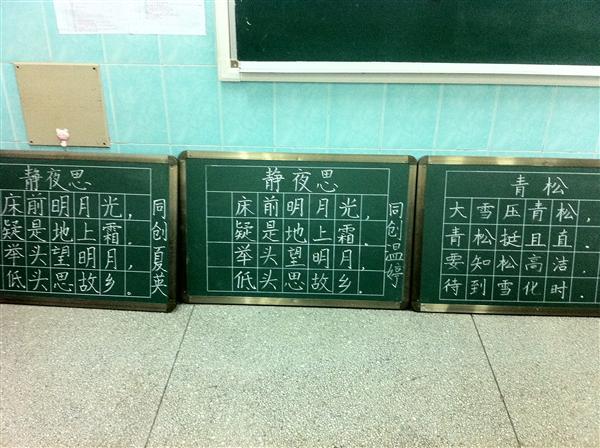 静夜思
床前明月光，
疑是地上霜.
举头望明月，
低头思故乡.
同创夏英
静夜思
床前明月光，
疑是地上霜.
举头望明月，
低头思故乡.
同创温婷
青松
大雪压青松，
青松挺且直.
要知松高洁，
待到雪化时.